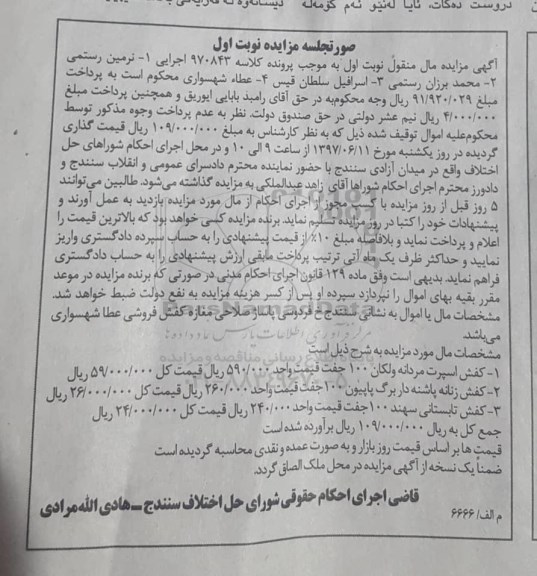 دروست دەکات، ئایا لەنێو ئەم کۆمەڵە
صورتجلسه مزایده نوبت اول
آگهی مزایده مال منقول نوبت اول به موجب پرونده کلاسه ۹۷۰۸۴۳ اجرایی ۱- نرمین رستمی
۲- محمد برزان رستمی ۳- اسرافیل سلطان قیس ۴- عطاء شهسواری محکوم است به پرداخت
مبلغ ۹۱/۹۲۰/۰۲۹ ریال وجه محکوم‌به در حق آقای رامبد بابایی ایوریق و همچنین پرداخت مبلغ
۴/۰۰۰/۰۰۰ ریال نیم عشر دولتی در حق صندوق دولت. نظر به عدم پرداخت وجوه مذکور توسط
محکوم‌علیه اموال توقیف شده ذیل که به نظر کارشناس به مبلغ ۱۰۹/۰۰۰/۰۰۰ ریال قیمت گذاری
گردیده در روز یکشنبه مورخ ۱۳۹۷/۰۶/۱۱ از ساعت ۹ الی ۱۰ و در محل اجرای احکام شوراهای حل
اختلاف واقع در میدان آزادی سنندج با حضور نماینده محترم دادسرای عمومی و انقلاب سنندج و
دادورز محترم اجرای احکام شوراها آقای زاهد عبدالملکی به مزایده گذاشته می‌شود. طالبین می‌توانند
۵ روز قبل از روز مزایده با کسب مجوز از اجرای احکام از مال مورد مزایده بازدید به عمل آورند و
پیشنهادات خود را کتبا در روز مزایده تسلیم نماید. برنده مزایده کسی خواهد بود که بالاترین قیمت را
اعلام و پرداخت نماید و بلافاصله مبلغ ۱۰٪ از قیمت پیشنهادی را به حساب سپرده دادگستری واریز
نمایید و حداکثر ظرف یک ماه آتی ترتیب پرداخت مابقی ارزش پیشنهادی را به حساب دادگستری
فراهم نماید. بدیهی است وفق ماده ۱۲۹ قانون اجرای احکام مدنی در صورتی که برنده مزایده در موعد
مقرر بقیه بهای اموال را نپردازد سپرده او پس از کسر هزینه مزایده به نفع دولت ضبط خواهد شد.
مشخصات مال یا اموال به نشانی سنندج خ فردوسی پاساژ صلاحی مغازه کفش فروشی عطا شهسواری
می‌باشد.
مشخصات مال مورد مزایده به شرح ذیل است
۱- کفش اسپرت مردانه ولکان ۱۰۰ جفت قیمت واحد ۵۹۰/۰۰۰ ریال قیمت کل ۵۹/۰۰۰/۰۰۰ ریال
۲- کفش زنانه پاشنه دار برگ پاپیون ۱۰۰ جفت قیمت واحد ۲۶۰/۰۰۰ ریال قیمت کل ۲۶/۰۰۰/۰۰۰ ریال
۳- کفش تابستانی سهند ۱۰۰ جفت قیمت واحد ۲۴۰/۰۰۰ ریال قیمت کل ۲۴/۰۰۰/۰۰۰ ریال
جمع کل به ریال ۱۰۹/۰۰۰/۰۰۰ ریال برآورده شده است
قیمت ها بر اساس قیمت روز بازار و به صورت عمده و نقدی محاسبه گردیده است
ضمنا یک نسخه از آگهی مزایده در محل ملک الصاق گردد.
قاضی اجرای احکام حقوقی شورای حل اختلاف سنندج ـ هادی الله‌مرادی
م الف/ ۶۶۶۶